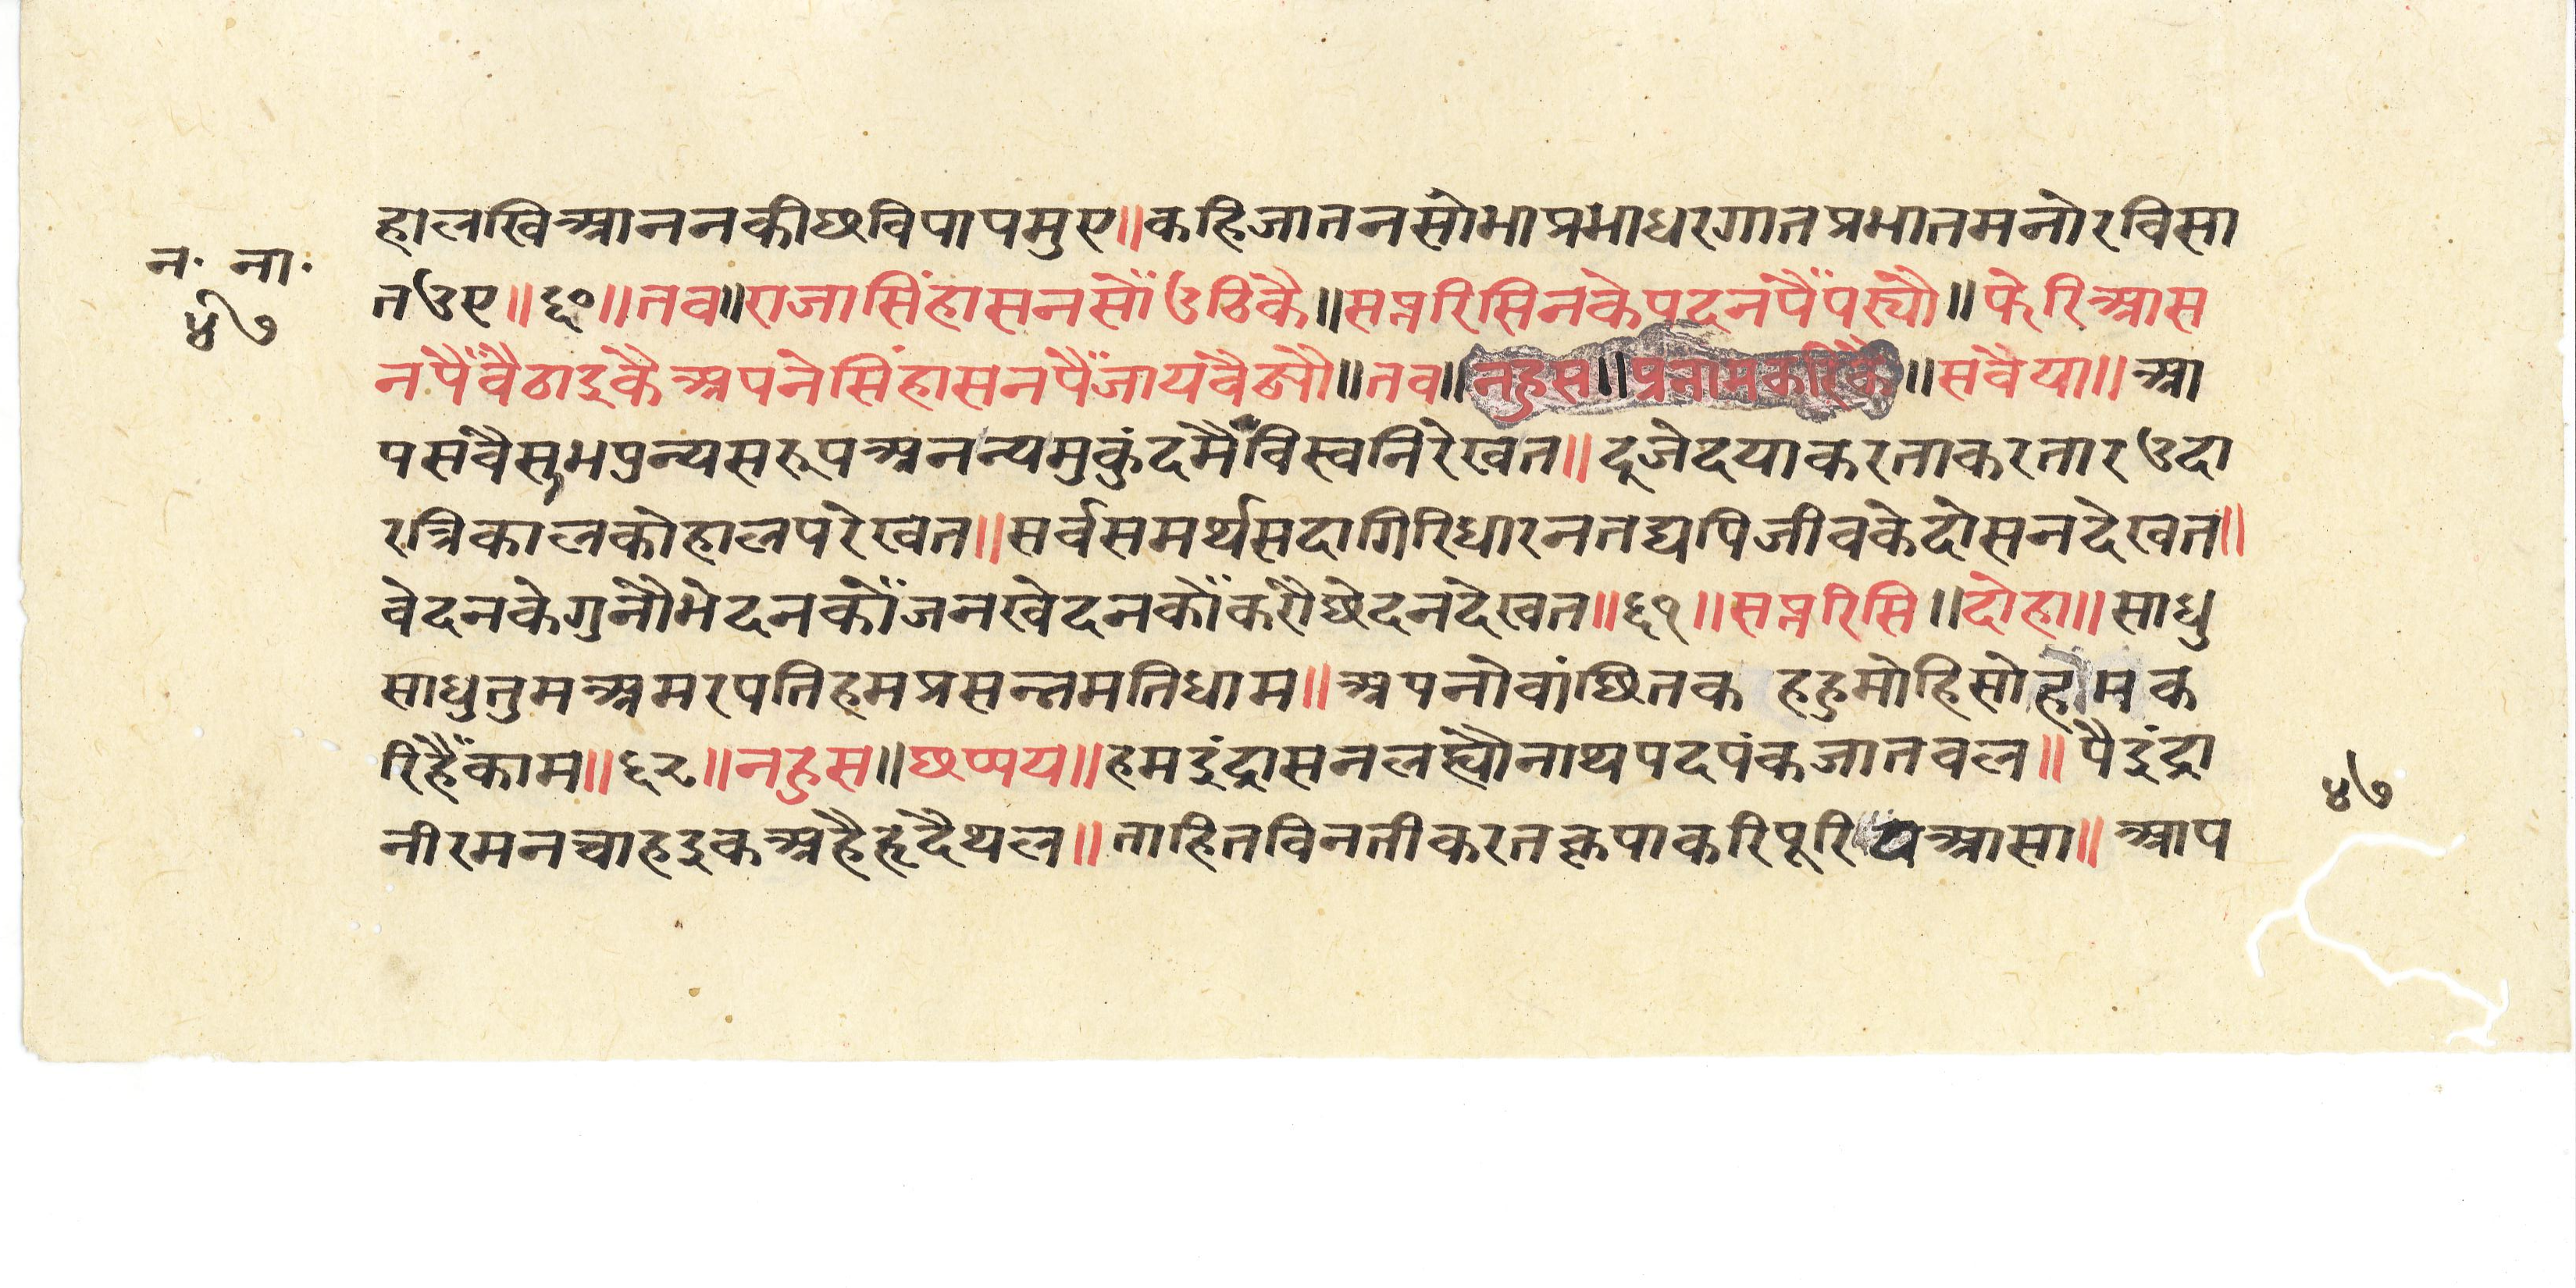 हालखिआननकीछविपापमुए॥कहिजातनसोभाप्रभाधरगातप्रभातमनोरविसा
न॰ ना॰
४७
तउए॥६०॥तव॥राजासिंहासनसोंउठिकै॥सप्तरिसिनकेपदनपैंपर्यौ॥फेरिआस
नपैंवैठाइकैअपनेसिंहासनपैंजायवैठ्यौ॥तव॥नहुस॥प्रनामकरिकै॥सवैया॥आ
पसवैसुभपुन्यसरूपअनन्यमुकुंदमैंविस्वनिरेखत॥दूजेदयाकरताकरतारउदा
रत्रिकालकोहालपरेखत॥सर्वसमर्थसदागिरिधारनतद्यपिजीवकेदोसनदेखत॥
वेदनकेगुनौभेदनकोंजनखेदनकोंकरौछेदनदेखत॥६१॥सप्तरिसि॥दोहा॥साधु
साधुतुमअमरपतिहमप्रसन्तमतिधाम॥अपनोवांछितक हहुमोहिसोहमक
रिहैंकाम॥६२॥नहुस॥छप्पय॥हमइंद्रासनलह्यौनाथपदपंकजातवल॥पैइंद्रा
नीरमनचाहइकअहैहृदैथल॥ताहितविनतीकरतकृपाकरिपूरियआसा॥आप
४७